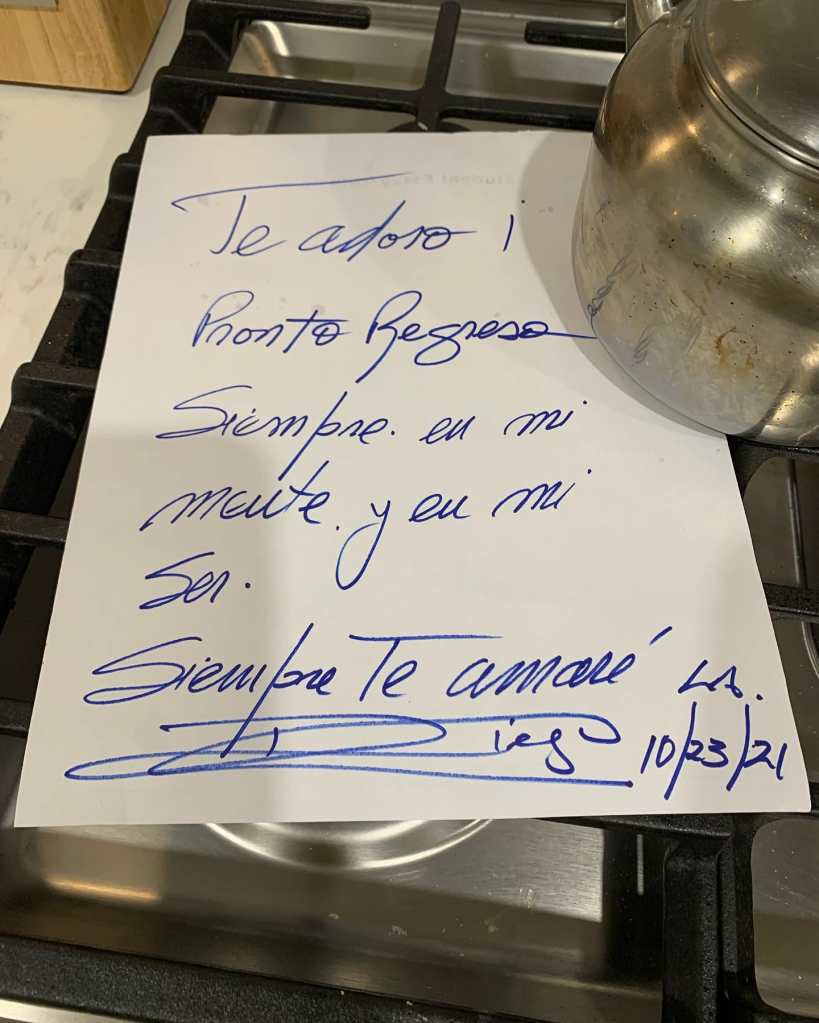 Te adoro !
Pronto Regreso
Siempre. en mi
mente. y en mi
Ser.
Siempre Te amaré L.A.
Diego 10/23/21